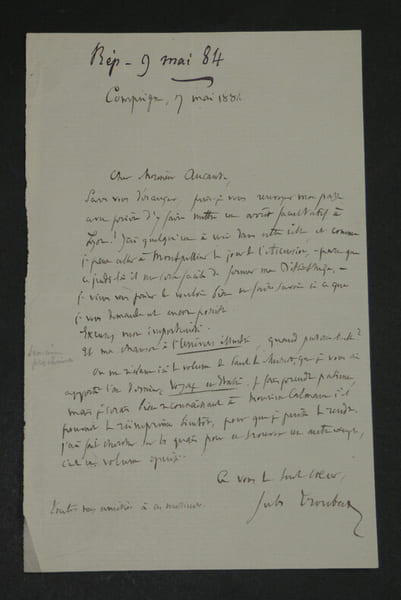 Rép - 9 mai 84
Compiègne, 7 mai 1884
Cher Monsieur Aucante,
Sans vous déranger, puis-je vous renvoyer ma passe
avec prière d'y faire mettre un arrêt facultatif à
Lyon ? J'ai quelqu'un à voir dans cette ville et comme
je veux aller à Montpellier le jour de l'Ascension, - parce que
ce jeudi là il me sera facile de
je viens vous prier de vouloir bien me faire savoir si ce que
je vous demande est encore possible
Excusez mon importunité.
Et ma chanson à l'Univers illustré, quand paraîtra-t-elle ?
semaine
prochaine
On me réclame ici le volume de Paul de Musset, que je vous ai
apporté l'an dernier, Voyage en Italie. Je fais prendre patience,
mais je serais bien reconnaissant à Monsieur Calmann s'il
pouvait le réimprimer bientôt, pour que je puisse le rendre.
j'ai fait chercher sur les quais pour en trouver un autre
c'est un volume épuisé.
A vous de tout cœur,
Jules Troubat
Toutes mes amitiés à ces messieurs.